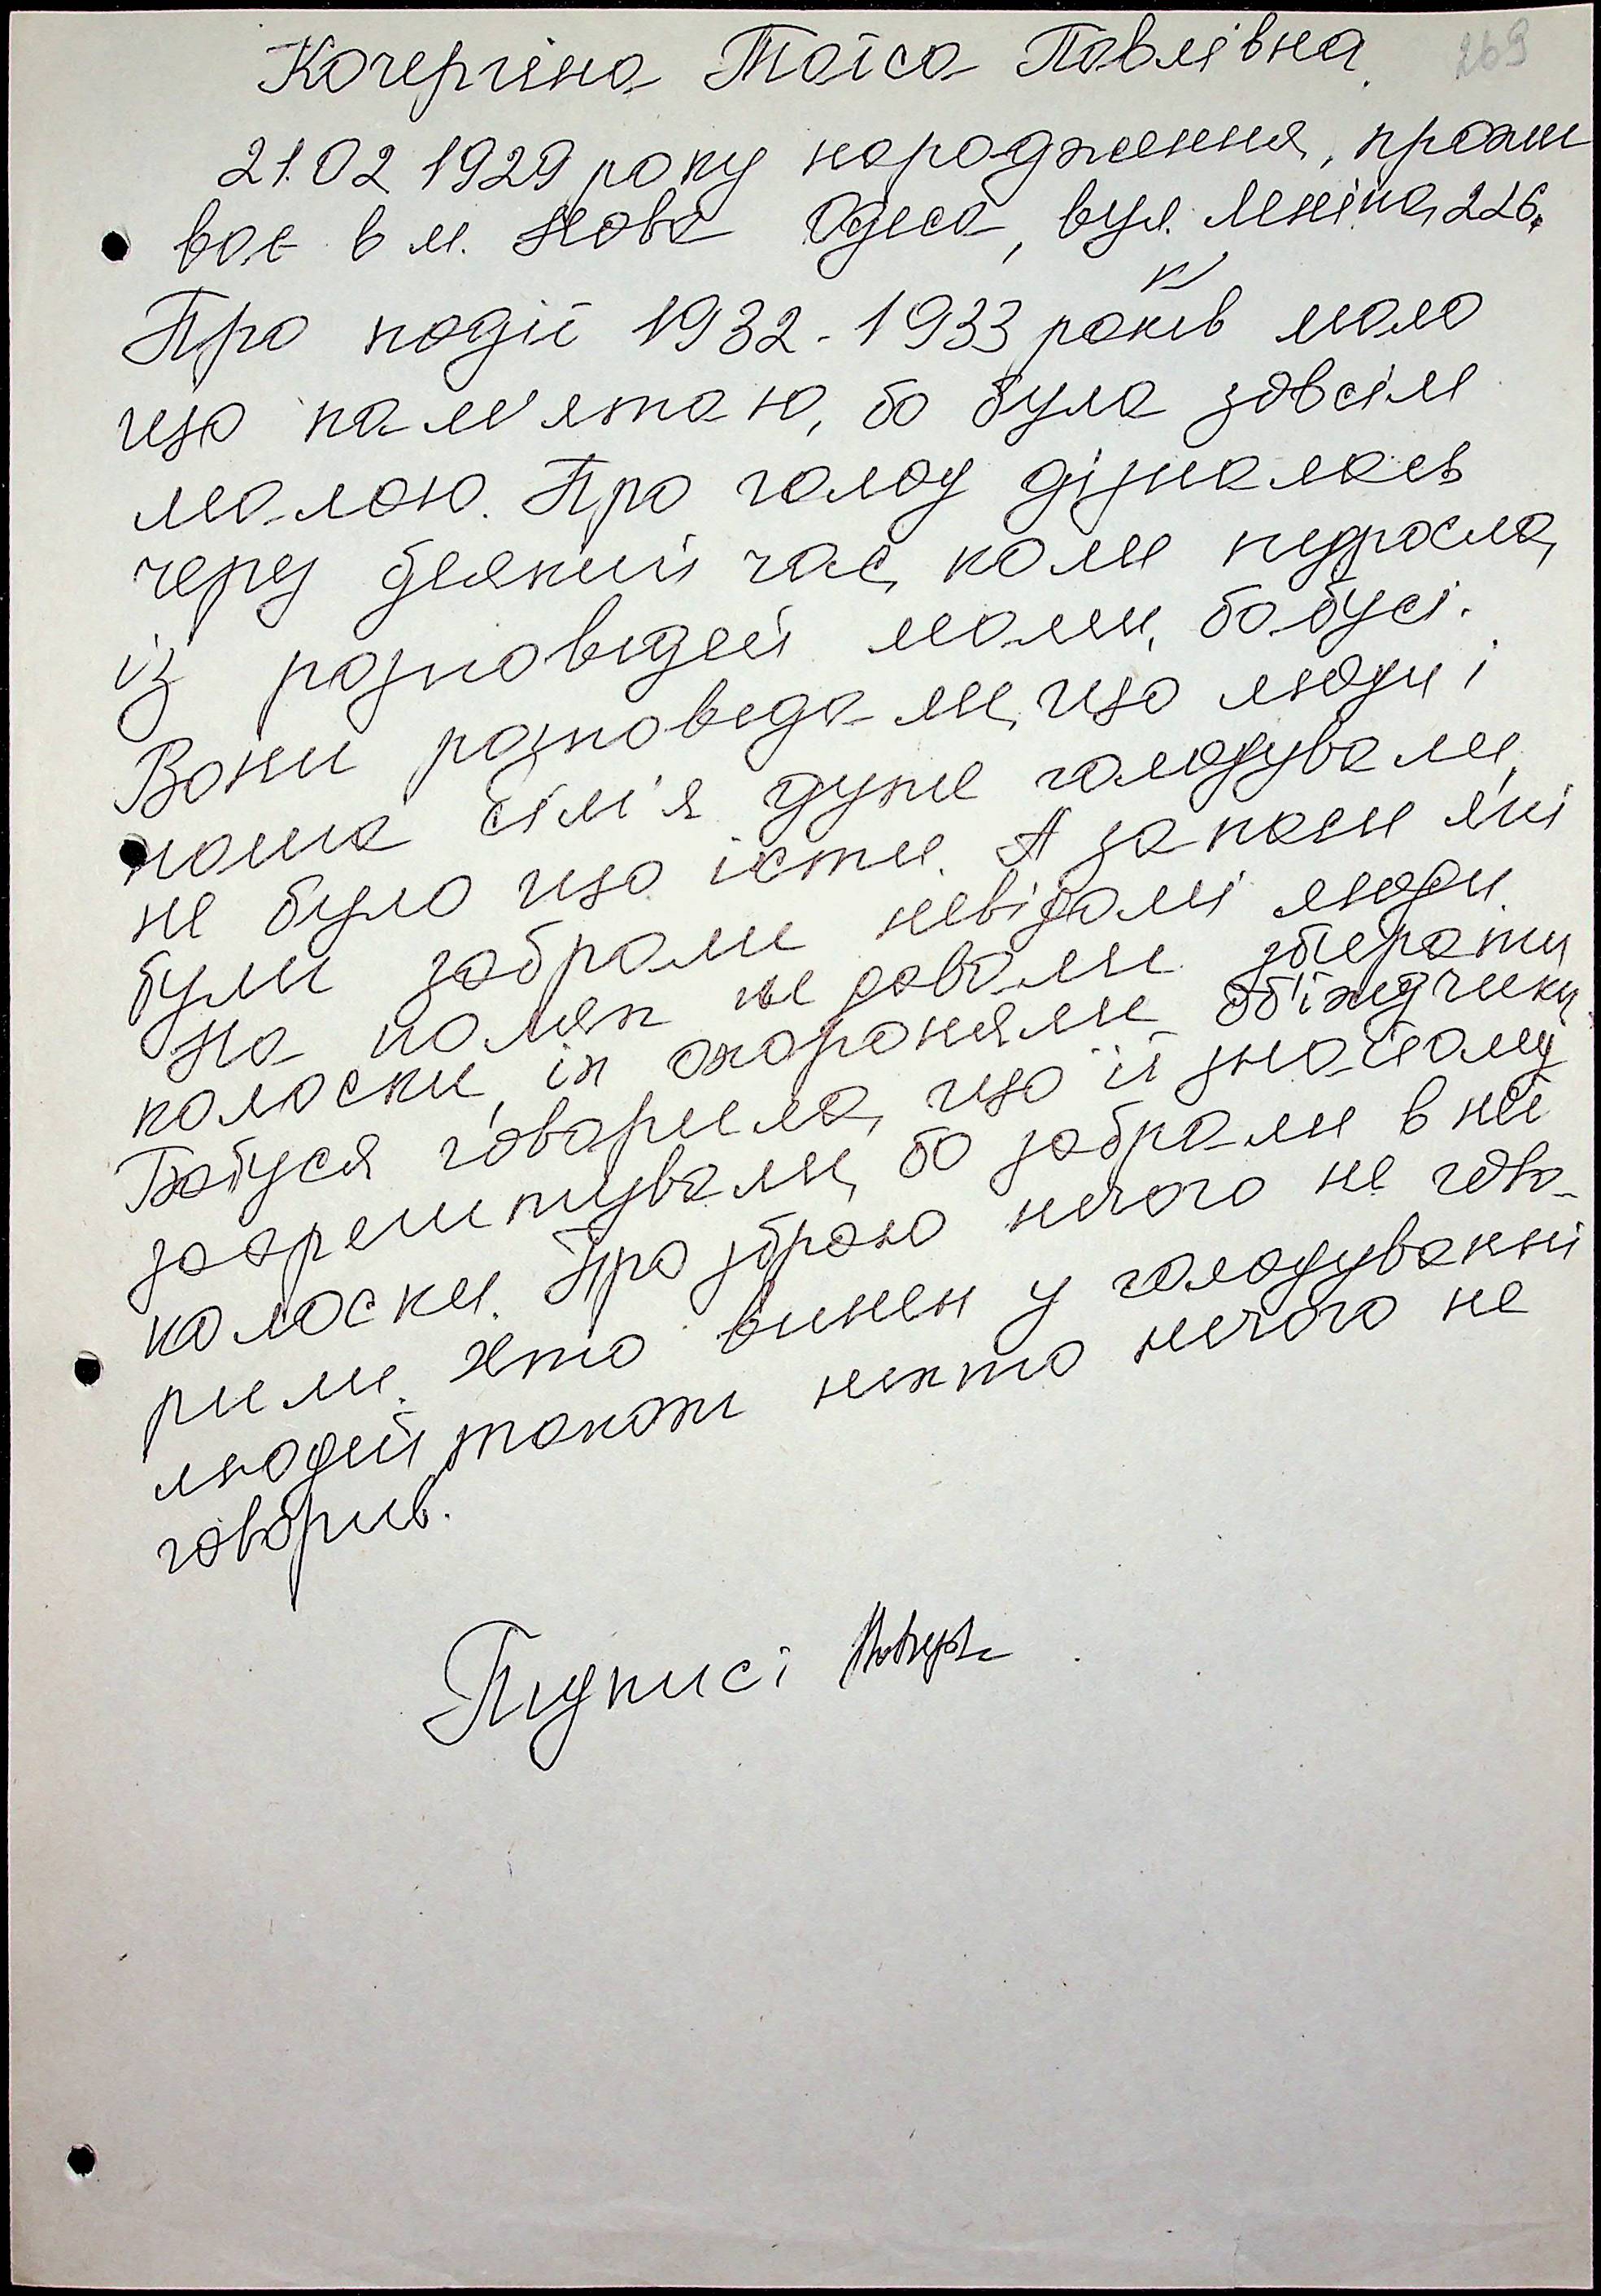 Кочергіна Таїса Павлівна
269
21.02 1929 року народження, прожи
ває в м. Нова Одеса, вул. Леніна, 226.
Про події 1932-1933 років мало
що пам'ятаю, бо була зовсім
малою. Про голод дізналась
через деякий час, коли підросла,
із розповідей мами, бабусі.
Вони розповідали, що люди і
наша сім'я дуже голодували,
не було що їсти. А запаси які
були забрали невідомі люди.
На полях не давали збирати
колоски, їх охороняли об'їждчики.
Бабуся говорила, що її знайому
заарештували, бо забрали в неї
колоски. Про зброю нічого не гово-
рили. Хто винен у голодуванні
людей також ніхто нічого не
говорив.
Підписі